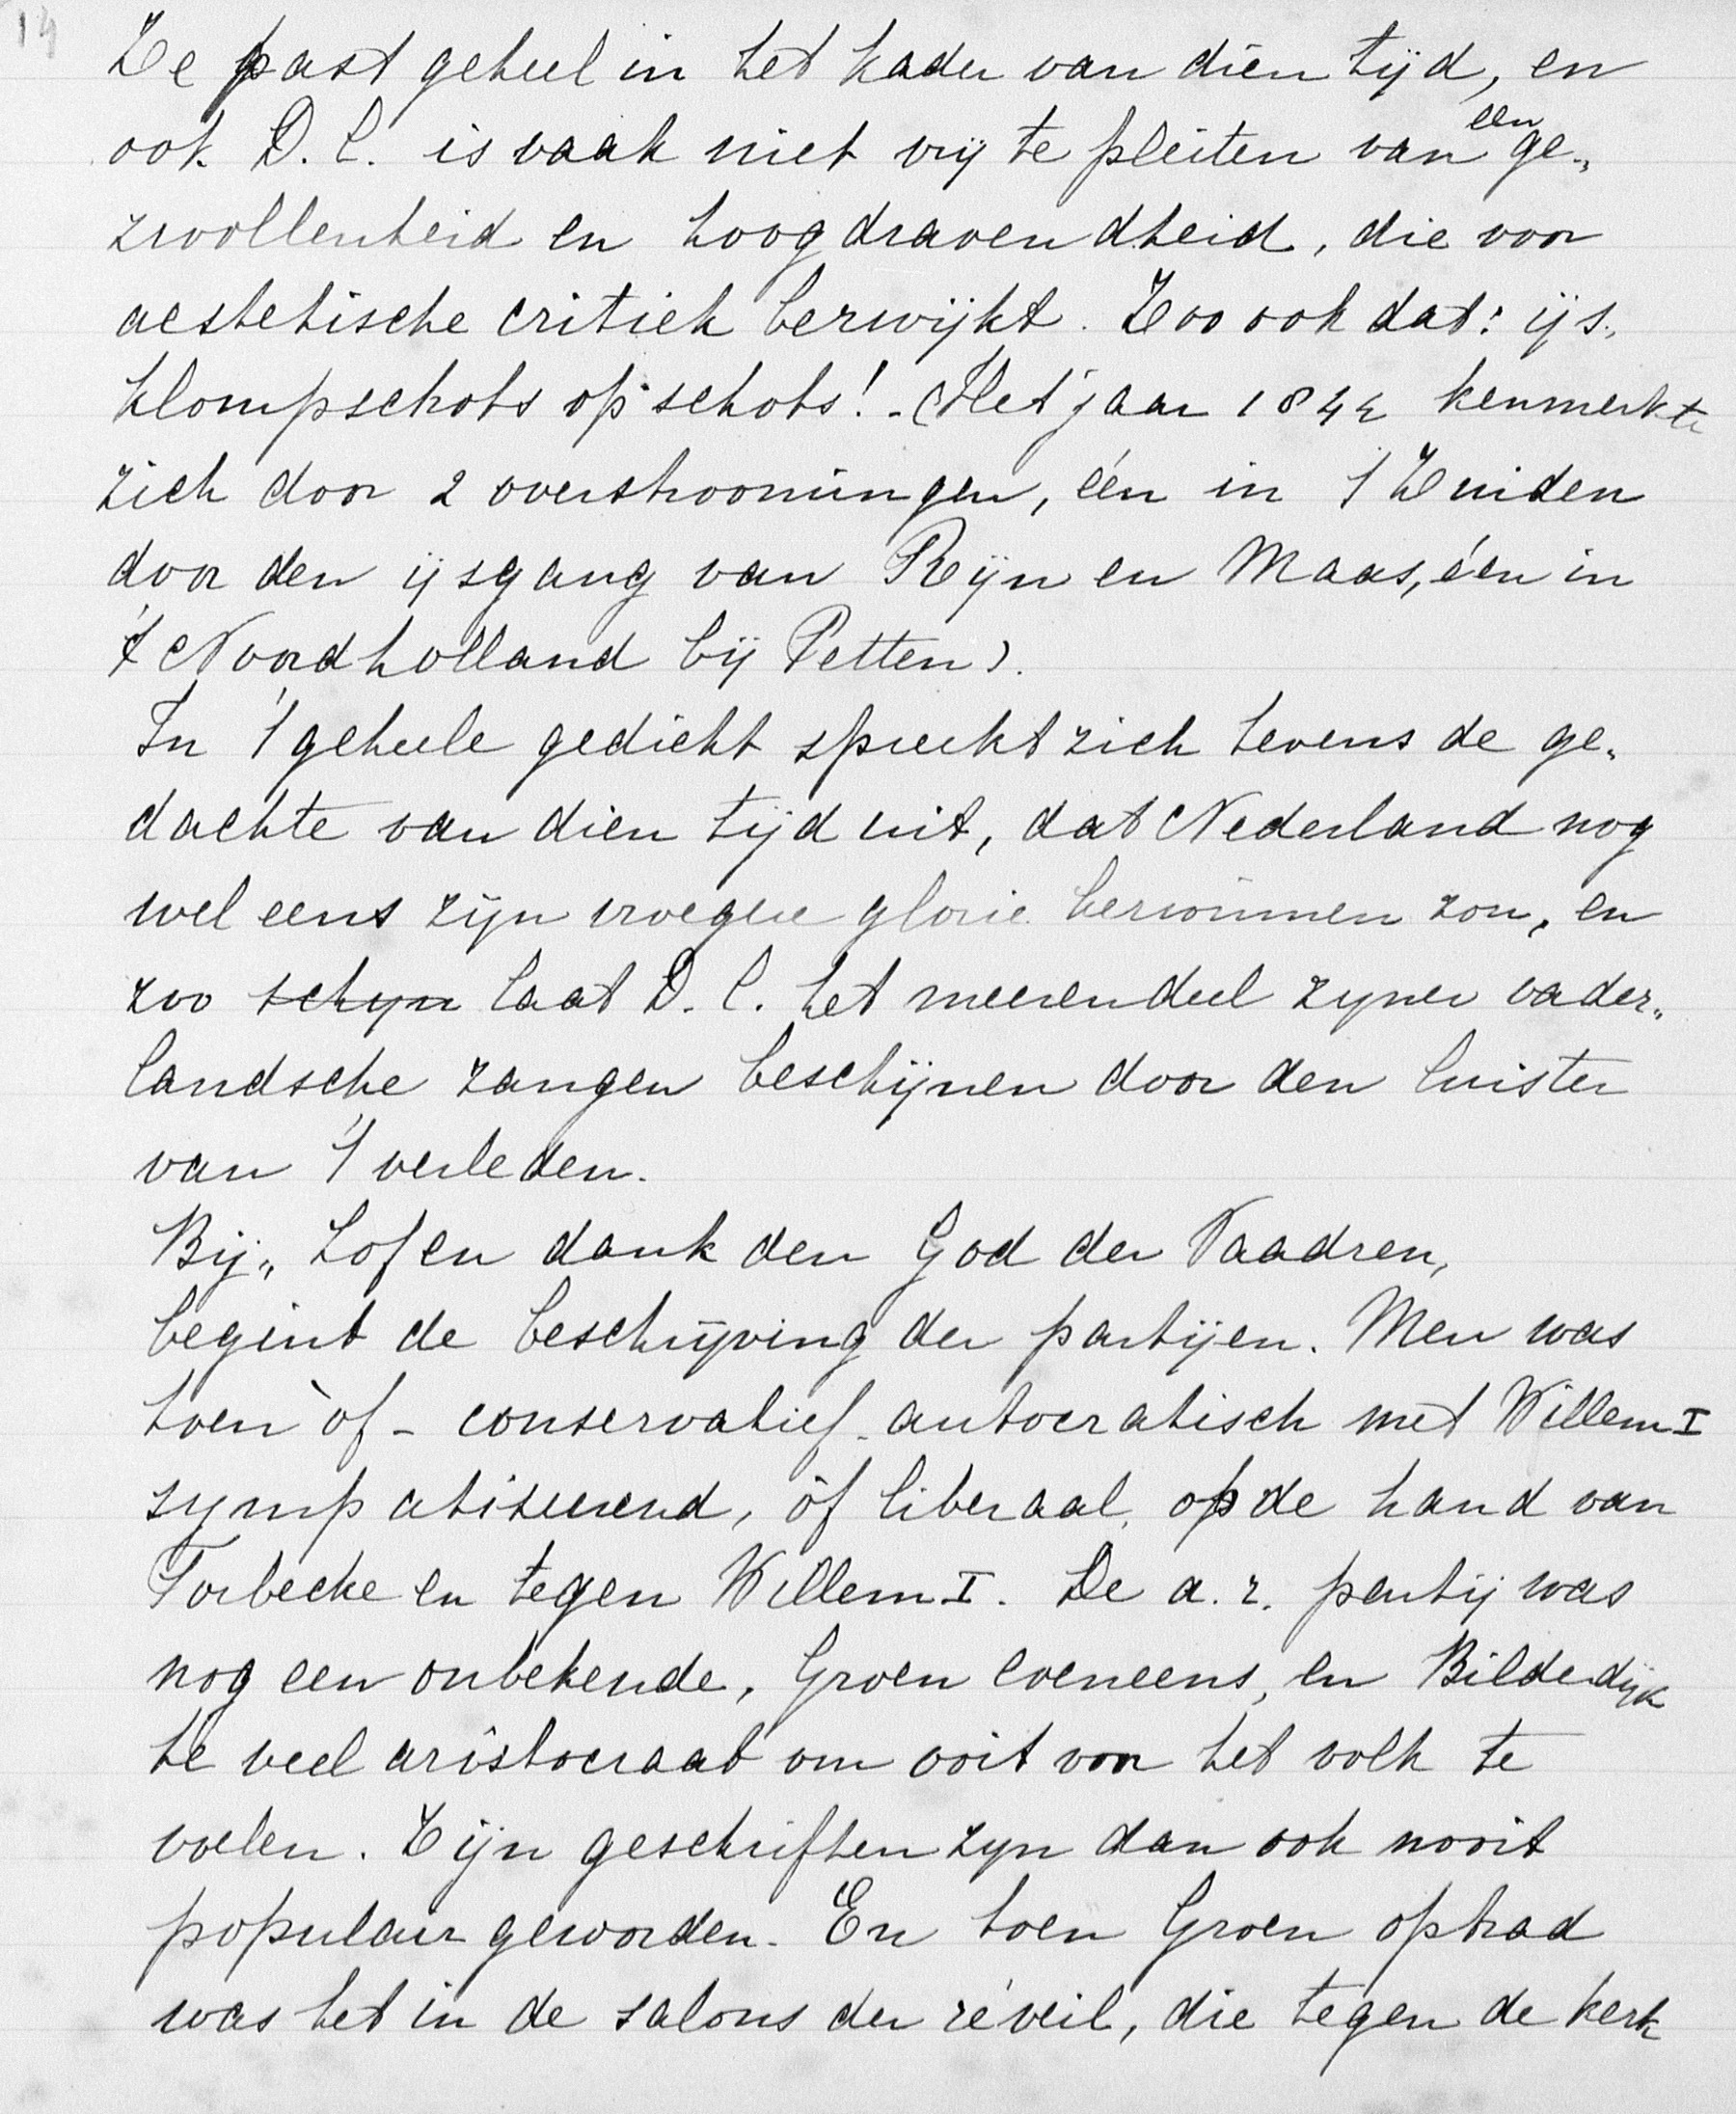 14
Ze past geheel in het kader van dien tijd, en
ook D. C. is vaak niet vrij te pleiten van een ge„
zwollenheid en hoogdravendheid, die voor
aesthetische critiek berwijkt. Zoo ook dat: ijs„
klompschots op schots! - (Het jaar 1844 kenmerkte
zich door 2 overstroomingen, één in 't Zuiden
door den ijsgang van Rijn en Maas, één in
't Noordholland bij Petten).
In 't geheele gedicht spreekt zich tevens de ge„
dachte van dien tijd uit, dat Nederland nog
wel eens zijn vroegere glorie herwinnen zou, en
zoo schijn laat D. C. het meerendeel zijner vader„
landsche zangen beschijnen door den luister
van 't verleden.
Bij „Lof en dank den God der Vaadren,
begint de beschrijving der partijen. Men was
toen òf - conservatief-autocratisch met Willem I
sympatiseerend, òf liberaal, op de hand van
Torbecke en tegen Willem I. De a. r. partij was
nog een onbekende, Groen eveneens, en Bilderdijk
te veel aristocraat om ooit voor het volk te
voelen. Zijn geschriften zijn dan ook nooit
populair geworden. En toen Groen optrad
was het in de salons der réveil, die tegen de kerk